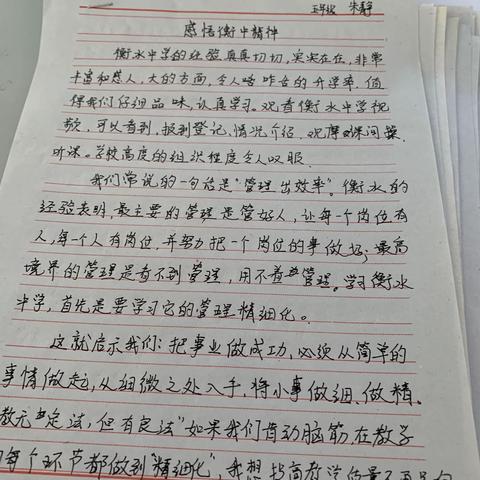 五年级 朱静
感悟衡中精神
衡水中学的经验真真切切,实实在在,非常
丰富和感人,大的方面,令人啧咋舌的升学率,值
得我们仔细品味,认真学习。观看衡水中学视
频,可以看到,报到登记、情况介绍、观摩课间操、
听课。学校高度的组织程度令人叹服.
我们常说的一句话是“管理出效率”。衡水的
经验表明,最主要的管理是管好人,让每一个岗位有
人,每一个人有岗位,并努力把一个岗位的事做好;最高
境界的管理是看不到管理,用不着管理。学习衡水
中学,首先是要学习它的管理精细化。
这就启示我们:把事业做成功,必须从简单的
事情做起,从细微之处入手,将小事做细、做精。
教无定法,但有良法"如果我们肯动脑筋,在教学
每个环节都做到“精细化”,我想提高教学质量不再是